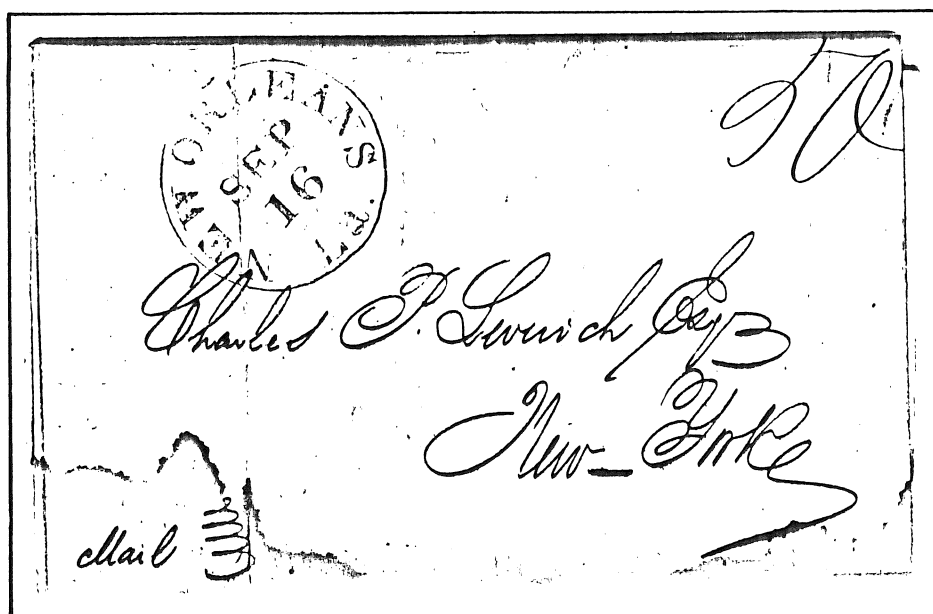 NEW ORLEANS
SEP
16
50
Charles P. Leverich Esq
New-York
Mail